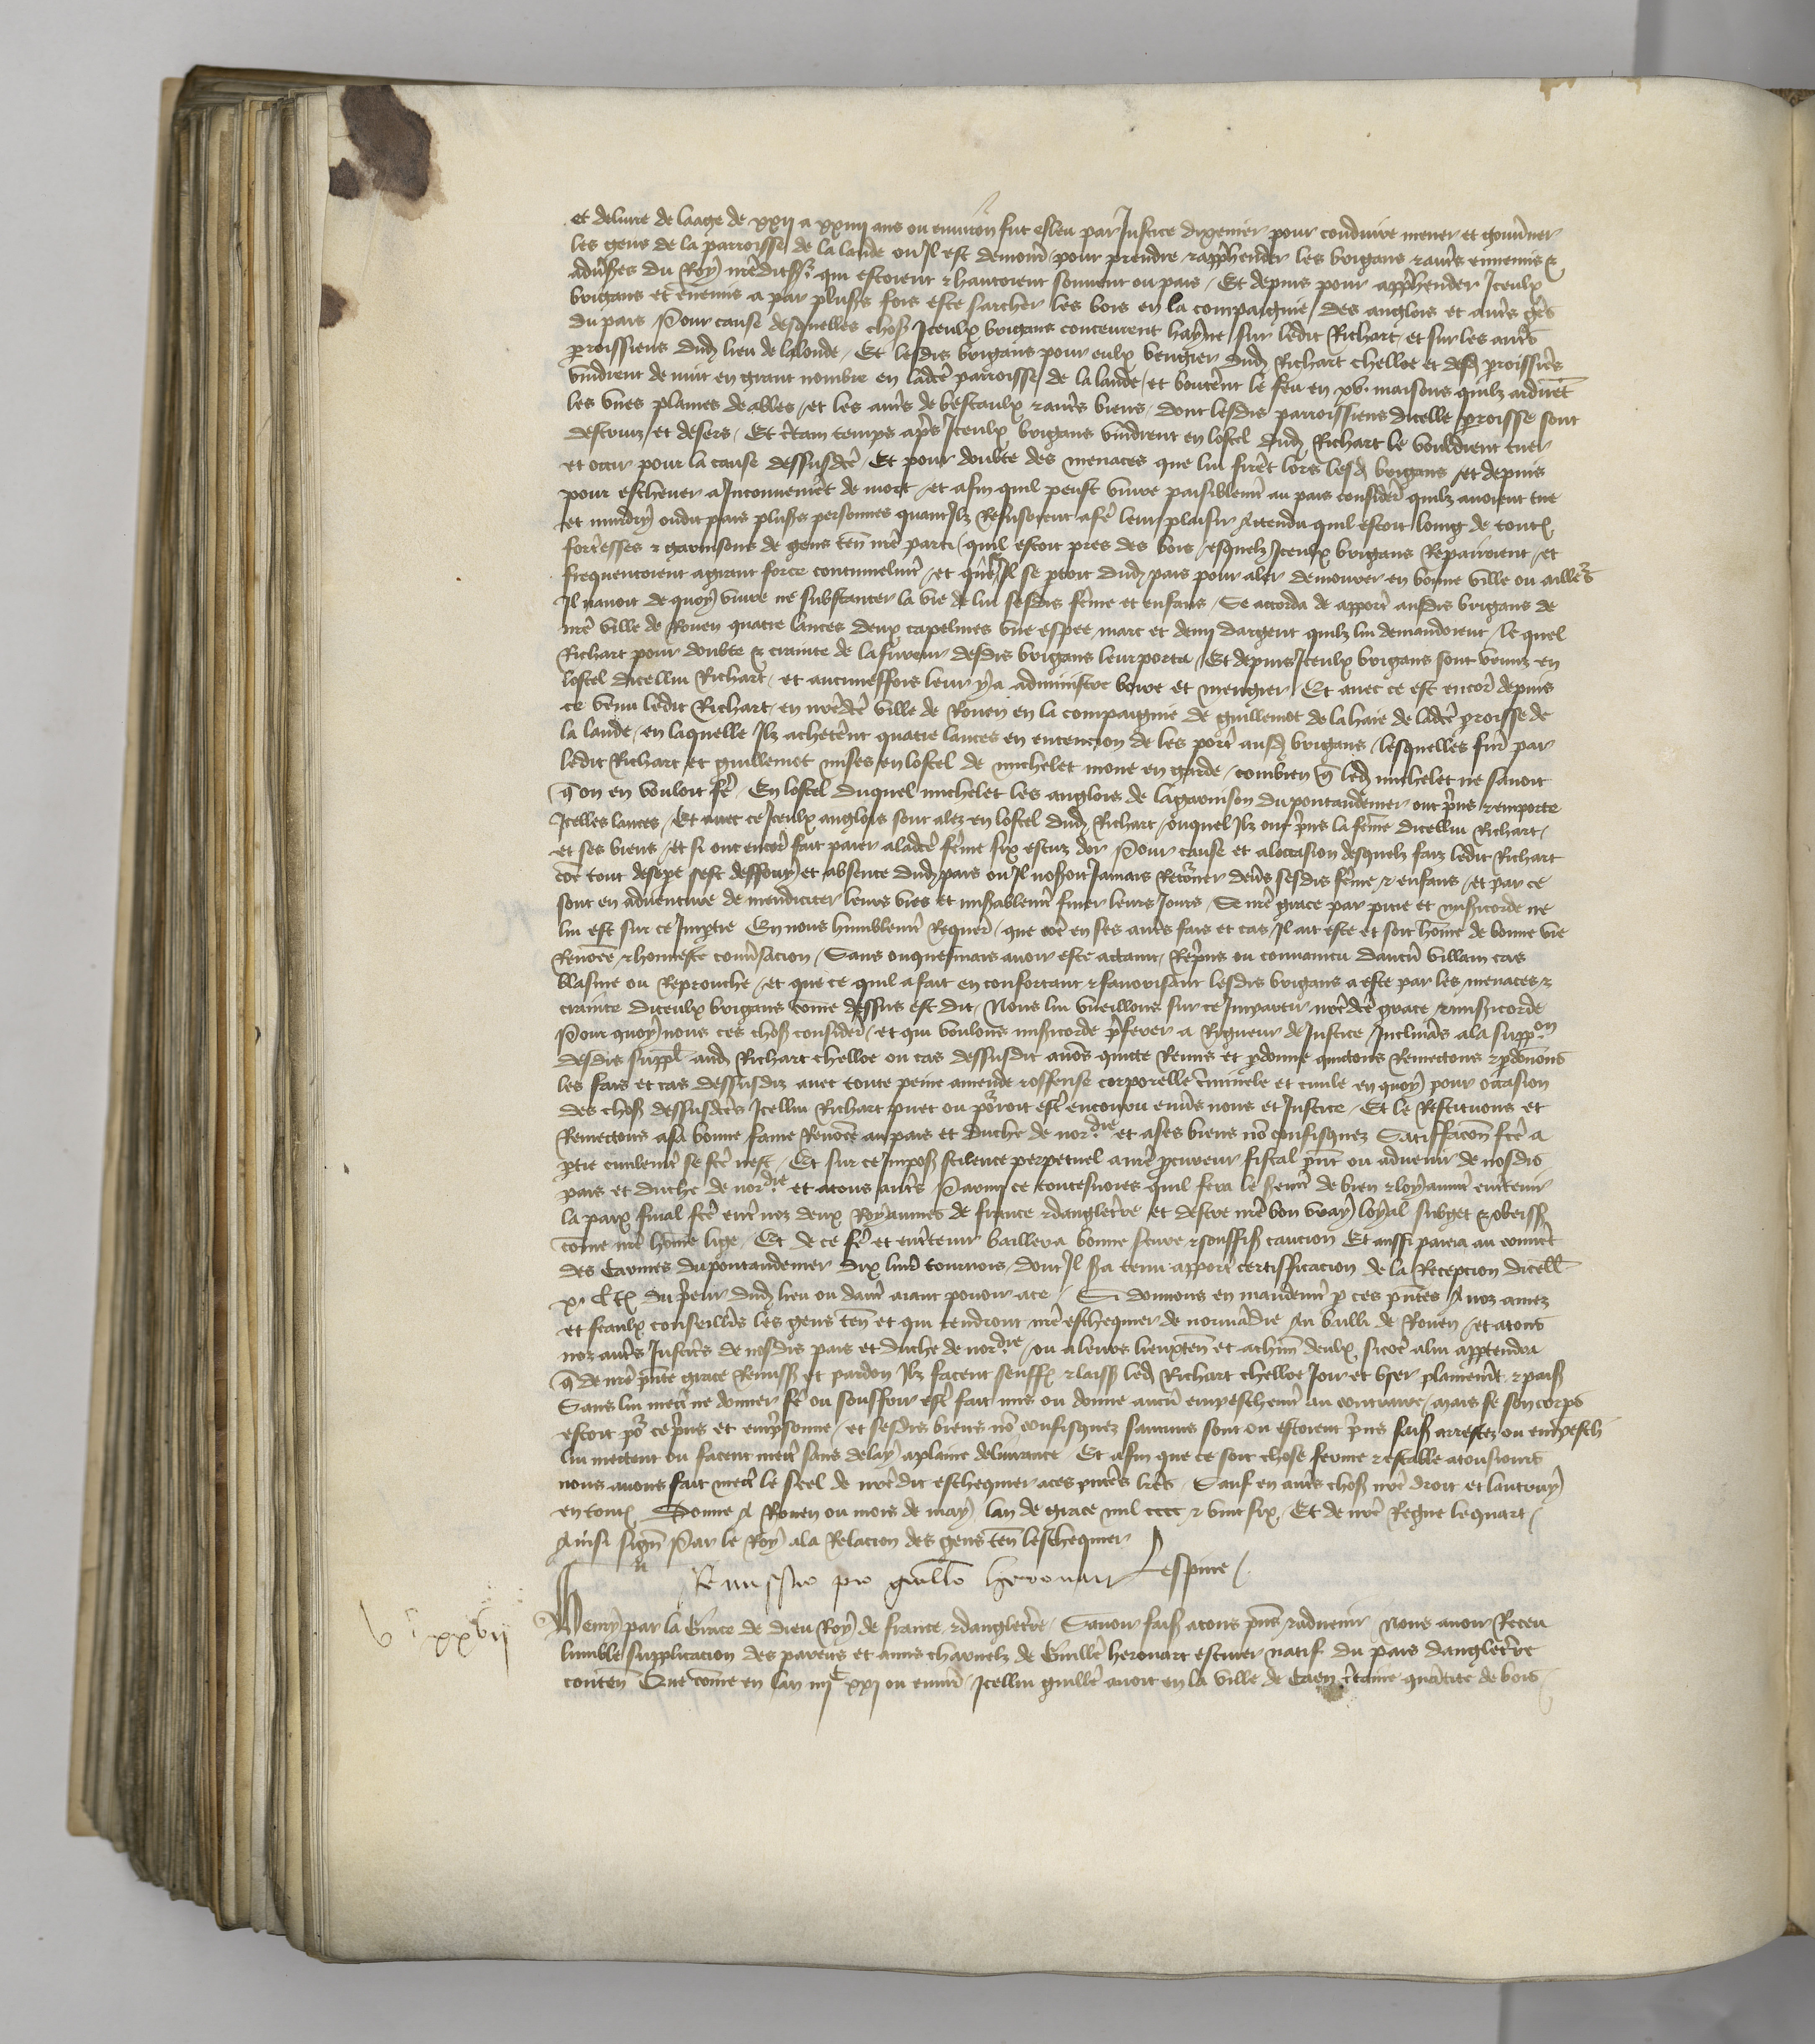 et delivre de laage de xxij a xxiiij ans ou environ fut esleu par Justice dixenier pour conduire mener et gouvner
les gens de la parroisse de la lande ou Il est demour pour prendre et apphender les brigans et autrs ennemis et
advses du Roy nredit sr qui estoient et hantoient souvent ou pais / Et depuis pour apphender Iceulx
brigans et enemis a par pluss fois este sarcher les bois en la compaignie des anglois et autrs gens
du pais Pour cause desquelles chos Iceulx brigans conceurent hayne sur ledit Richart et sur les autrs
proissiens dud lieu de la londe / Et lesdis brigans pour eulx vengier dud Richart chelloe et desd proissies
vindrent de nuit en grant nombre en ladce parroisse de la lande / et boutent le feu en xv maisons quilz ardiret
les unes plaines de bles / et les autrs de bestaulx et autrs biens / dont lesdis parroissiens dicelle proisse sont
destruiz et desers / Et ctain temps aps Iceulx brigans vindrent en lostel dud Richart le vouldrent tuer
et occir pour la cause dessusdce / Et pour doubte des menaces que lui firet lors lesd brigans / et depuis
pour eschever a Inconveniet de mort / et afin quil peust vivre paisiblemt au pais consider quilz avoient tue
et murdry oudit pais pluss personnes quant Ilz Refusoient a fe leur plaisir Attendu quil estoit loing de tout
fortesses et garnisons de gens ten nre parti / quil estoit pres des bois / esquelz Iceulx brigans Repairoient / et
frequentoient a grant force continuelmt / et que se Il se ptoit dud pais pour aler demourer en bonne ville ou ailles
Il navoit de quoy vivre ne substanter la vie de lui sesdis feme et enfans / Se accorda de apport ausdis brigans de
nre ville de Rouen quatre lances deux capelines une espee / marc et demi dargent quilz lui demandoient / le quel
Richart pour doubte et crainte de la fureur desdis brigans leur porta / Et depuis Iceulx brigans sont venuz en
lostel dicellui Richart / et aucunessfois leur y a administre boire et mengier / Et avec ce est encor depuis
ce venu ledit Richart / en nredce ville de Rouen en la compaignie de guillemot de la haie de ladce proisse de
la lande / en laquelle Ilz achetent quatre lances en entencion de les port ausd brigans / lesquelles fur par
ledit Richart et guillemot mises en lostel de michelet mone en garde / combien q led michelet ne savoit
q on en vouloit fe / En lostel duquel michelet les anglois de la garnison du pontaudemer ont pns et emporte
Icelles lances / Et avec ce Iceulx anglois sont alez en lostel dud Richart / ouquel Ilz ont pns la feme dicellui Richart
et ses biens / et si ont encor fait paier a ladce feme six escuz dor Pour cause et a loccasion desquelz faiz ledit Richart
coe tout desespe sest deffouy et absente dud pais ou Il noseroit Jamais Retorner devs sesdis feme et enfans / et par ce
sont en adventure de mendicier leurs vies et misablemt finer leurs Jours / Se nre grace par pitie et misicorde ne
lui est sur ce Imptie En nous humblemt Requer / que coe en ses autrs fais et cas / Il ait este et soit home de bonne vie
Renomee et honneste convsacion / Sans onquesmais avoir este actaint / Repns ou convaincu daucu villain cas
blasme ou Reprouche / et que ce quil a fait en confortant et favorisant lesdis brigans a este par les menaces et
crainte diceulx brigans come dessus est dit / Nous lui vueillons sur ce Impartir nredce grace et misicorde
Pour quoy nous ces chos consider / et qui voulons misicorde pferer a Rigueur de Justice / Inclinas a la suppon
desdis suppl aud Richart chelloe ou cas dessusdit avos quitte Remis et pdonne quictons Remectons et pdonons
les fais et cas dessusdiz avec toute peine amende et offense corporelle criminele et civile en quoy pour occasion
des chos dessusdces Icellui Richart puet ou porroit est encouru envs nous et Justice / Et le Restituons et
Remectons a sa bonne fame Renomee au pais et duche de normdie et a ses biens no confisquez Satisfacon fce a
ptie civilemt se fce nest / Et sur ce Impos scilence perpetuel a nre pcureur fiscal pnt ou advenir de nosdis
pais et duche de normdie et a tous autrs Parmi ce toutesvoies quil fera le sermt de bien et loyaumt entenir
la paix final fce entr noz deux Royaumes de france et dangletre et destre nre bon vray loyal subget et obeiss
come nre home lige / Et de ce fe et entenir baillera bonne seure et souffis caucion Et aussi paiera au couvet
des Carmes du pontaudemer dix livr tournois / dont Il sa tenu apport certifficacion de la Recepcion dicell
x l t du prieur dud lieu ou dautr aiant povoir a ce / Si donnons en mandemt p ces pntes A noz amez
et feaulx conseills les gens ten et qui tendront nre eschequier de normadie Au bailli de Rouen / et a tous
noz autrs Justics de nosdis pais et duche de normdie / ou a leurs lieuxten et a chun deulx si coe a lui apptendra
q de nre pnte grace Remiss et pardon Ilz facent seuff et laiss led Richart chelloe Joir et user plainemt et pais
Sans lui mectr ne donner fe ou souffrir est fait mis ou donne aucu empeschemt au contraire / mais se son corps
estoit por ce pns et emprisonne / et sesdis biens no confisquez / aucuns sont ou estoient pns sais arrestez ou empesch
lui mectent ou facent mectr sans delay a plaine delivrance / Et afin que ce soit chose ferme et estable a tousiours
nous avons fait mectr le seel de nredit eschequier a ces pntes lres / Sauf en autrs chos nre droit et lautruy
en tout Donne A Rouen ou mois de may lan de grace mil cccc et vint six / Et de nre Regne le quart /
Ainsi sign Par le Roy a la Relacion des gens ten leschequier Lespine /
Remissio pro guillo herouart
vc xxvij
Henry par la Grace de dieu Roy de france et dangletre / Savoir fais a tous pns et advenir Nous avoir Receu
lumble supplicacion des parens et amis charnelz de Guille herouart escuier natif du pais dangletre
conten Que come en lan iiiic xxj ou envir / Icellui guille avoit en la ville de Caen ctaine quatite de bois